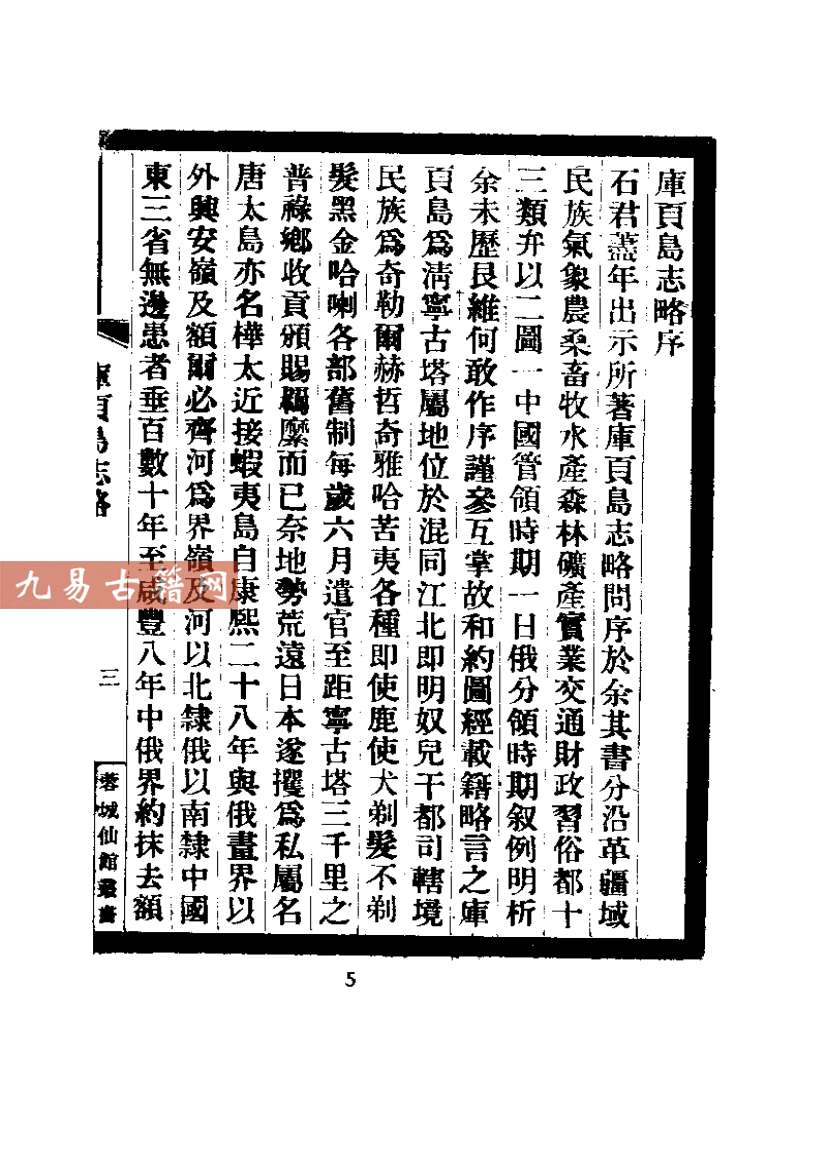 庫頁島志略序
石君藎年出示所著庫頁島志略問序於余其書分沿革疆域
民族氣象農桑畜牧水產森林礦產實業交通財政習俗都十
三類弁以二圖一中國管領時期一日俄分領時期叙例明析
余未歷艮維何敢作序謹叅互掌故和約圖經載籍略言之庫
頁島爲清寧古塔屬地位於混同江北即明奴兒干都司轄境
民族爲奇勒爾赫哲奇雅哈苦夷各種即使鹿使犬剃髮不剃
髮黑金哈喇各部舊制每歲六月遣官至距寧古塔三千里之
普祿鄉收貢頒賜羈縻而已奈地勢荒遠日本遂攫爲私屬名
唐太島亦名樺太近接蝦夷島自康熙二十八年與俄畫界以
外興安嶺及額爾必齊河爲界嶺及河以北隸俄以南隸中國
東三省無邊患者垂百數十年至咸豐八年中俄界約抹去額
庫頁島志略
三
蓉城仙館叢書
九易古籍网
5